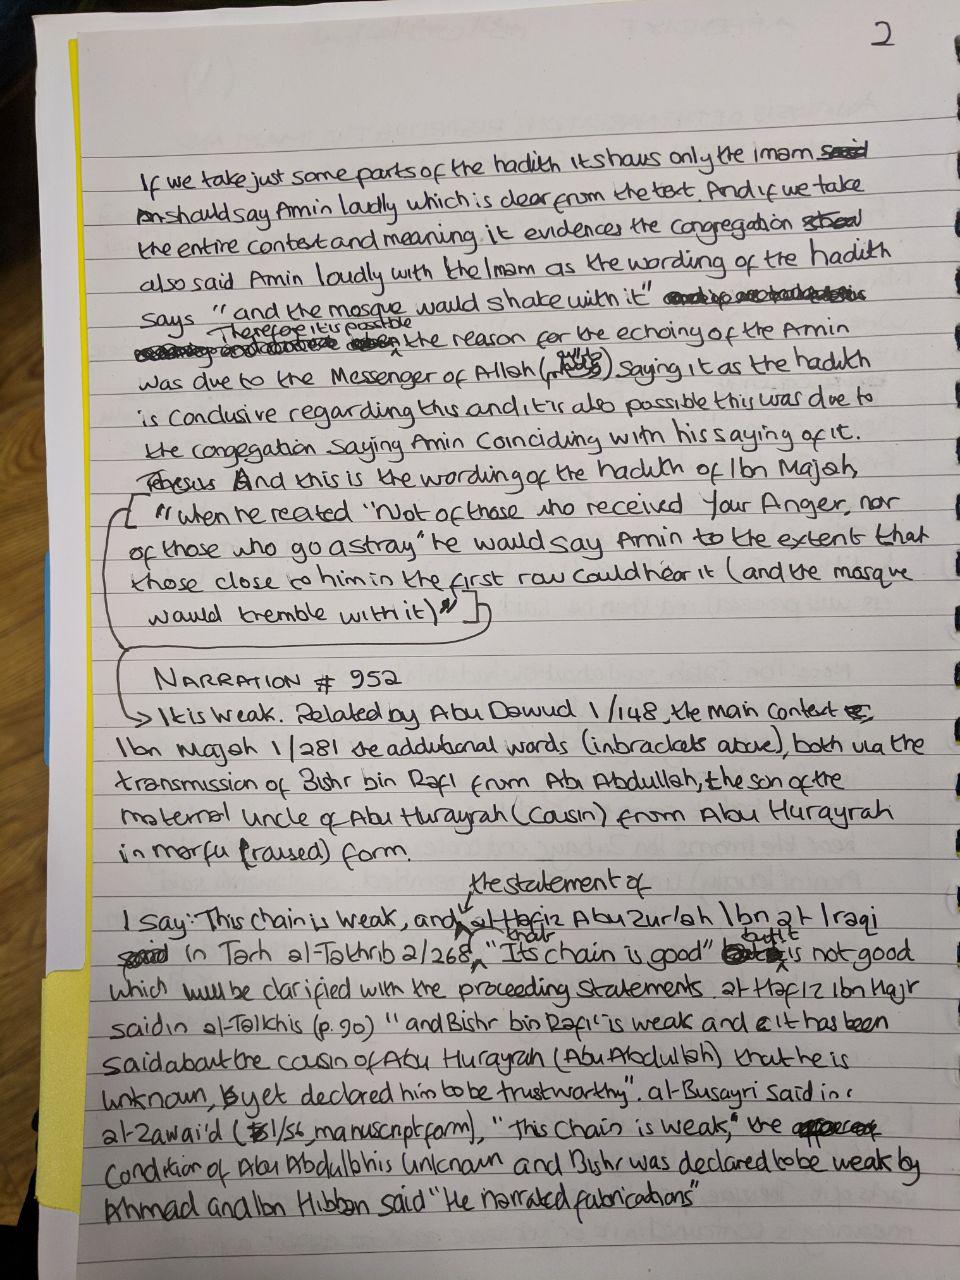 2
If we take just some parts of the hadith it shows only the imam
should say Amin loudly which is clear from the text. And if we take
the entire context and meaning it evidences the congregation
also said Amin loudly with the Imam as the wording of the hadith
says "and the mosque would shake with it"
Therefore it is possible
the reason for the echoing of the Amin
was due to the Messenger of Allah ( ) saying it as the hadith
is conclusive regarding this and it is also possible this was due to
the congegation saying Amin coinciding with his saying of it.
And this is the wording of the hadith of Ibn Majah,
"when he recited "Not of those who received Your Anger, nor
of those who go astray" he would say Amin to the extent that
those close to him in the first row could hear it (and the mosque
would tremble with it)"
NARRATION # 952
It is weak. Related by Abu Dawud 1/148, the main context
Ibn Majah 1/281 the additional words (in brackets above), both via the
transmission of Bishr bin Rafi from Abi Abdullah, the son of the
maternal uncle of Abu Hurayrah (cousin) from Abu Hurayrah
in marfu (raised) form.
the statement of
I say: This chain is weak, and al-Hafiz Abu Zur'ah Ibn al-Iraqi
that but it
in Tarh al-Tathrib 2/268, "Its chain is good" is not good
which will be clarified with the proceeding statements. al-Hafiz Ibn Hajr
said in al-Talkhis (p.90) "and Bishr bin Rafi' is weak and it has been
said about the cousin of Abu Hurayrah (Abu Abdullah) that he is
unknown, yet declared him to be trustworthy". al-Busayri said in
al-Zawai'd (1/56, manuscript form), "This chain is weak," the
condition of Abu Abdullah is unknown and Bishr was declared to be weak by
Ahmad and Ibn Hibban said "He narrated fabrications"